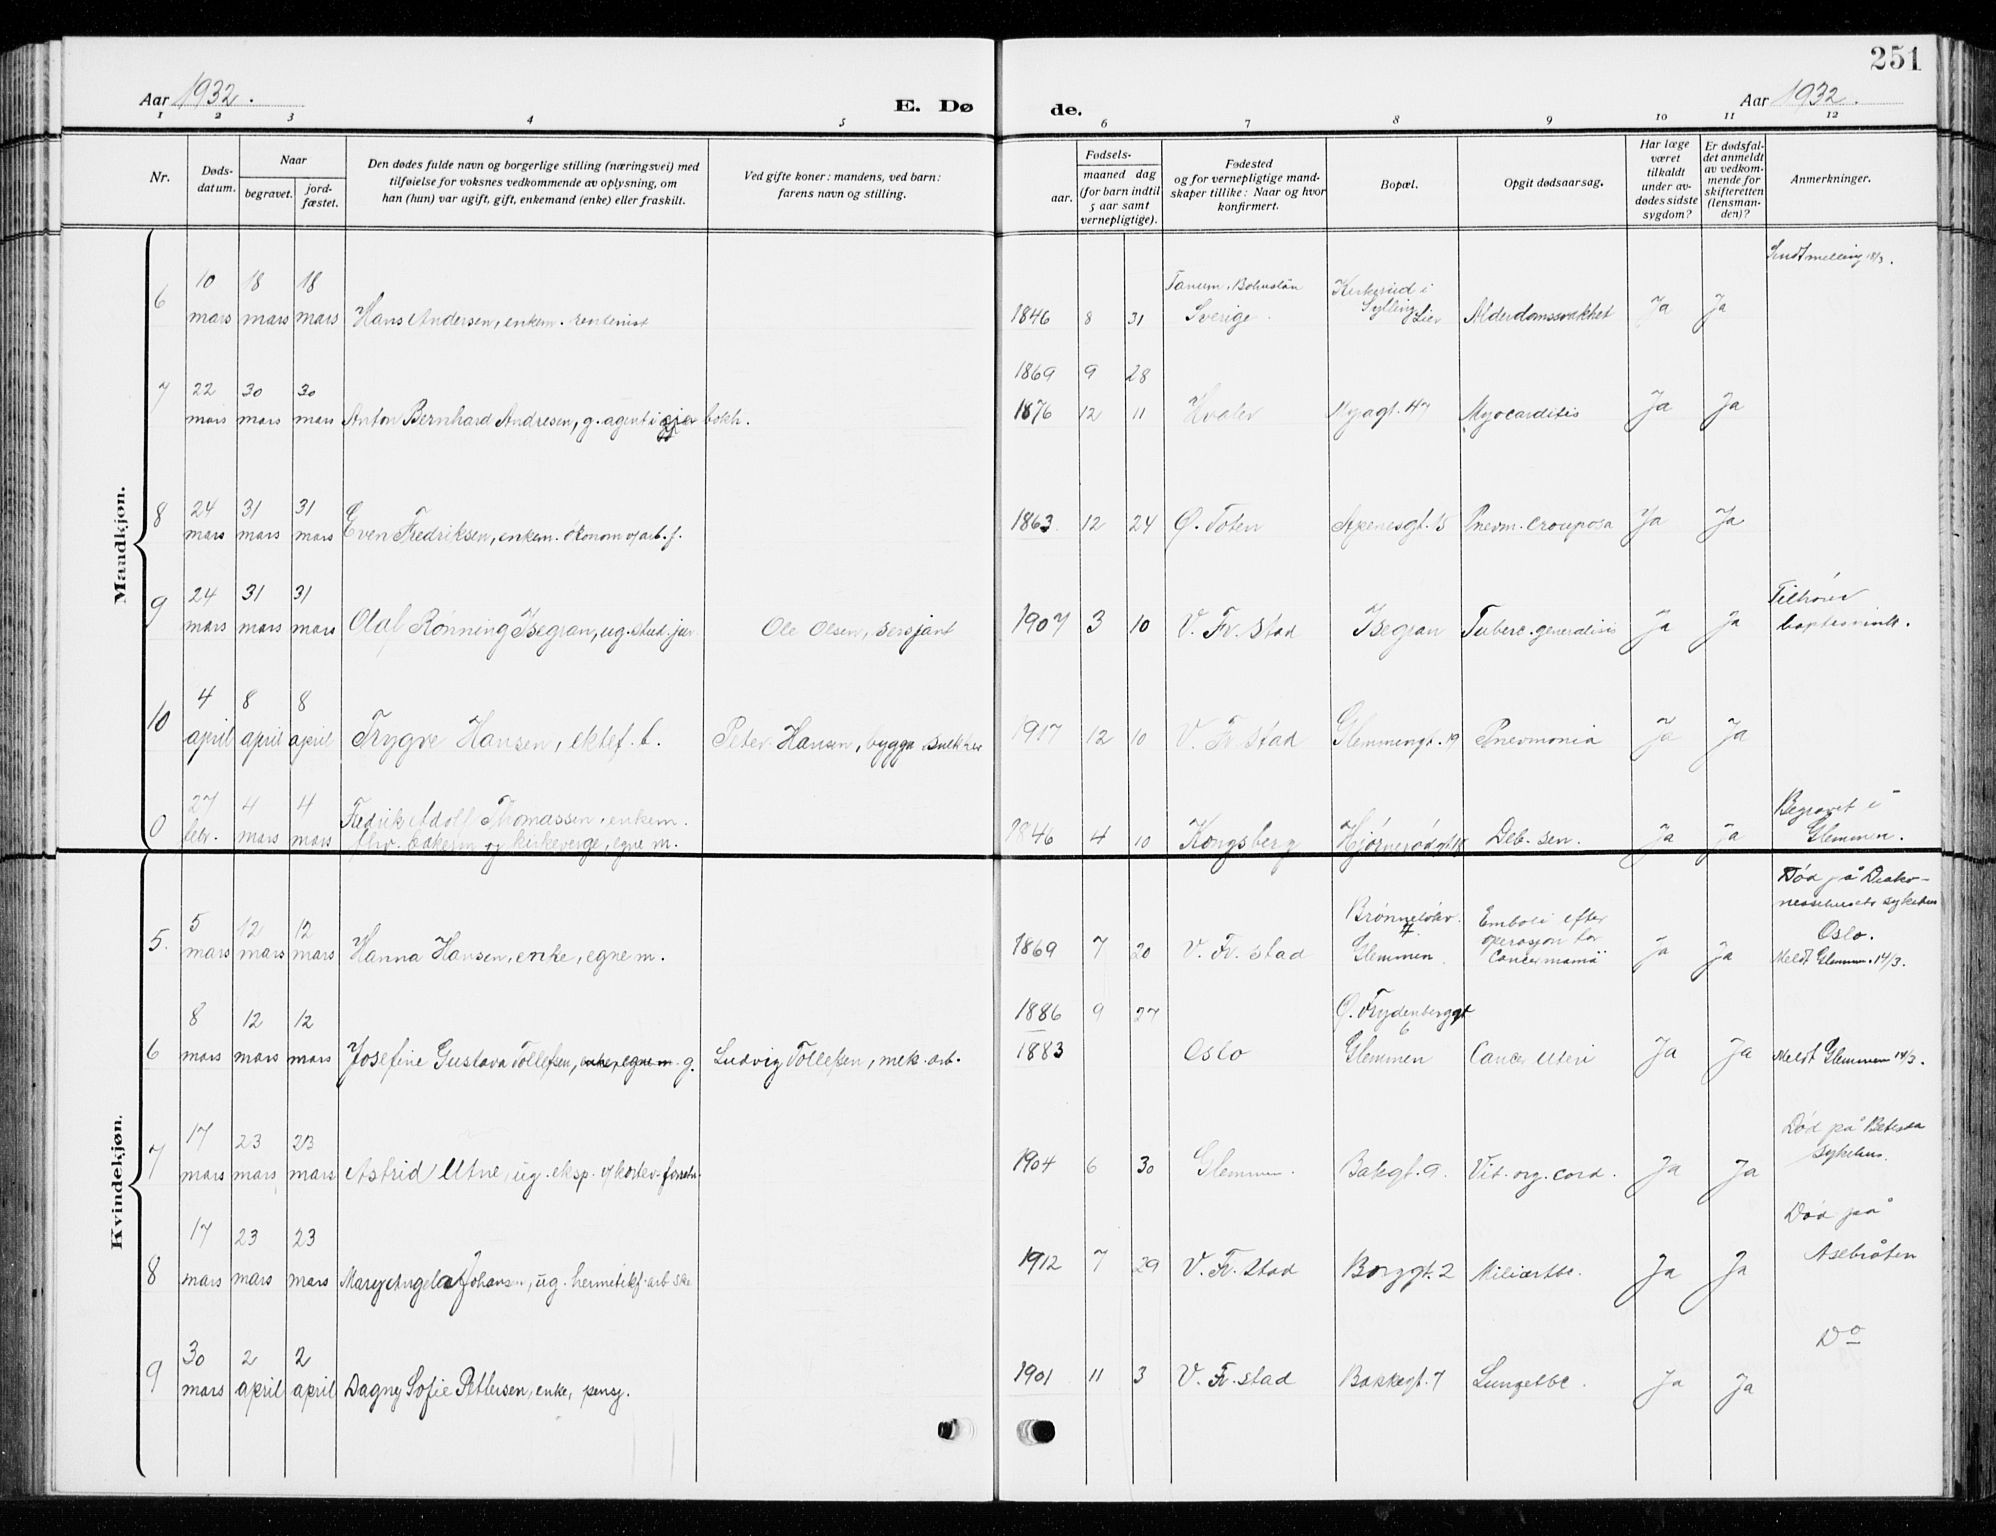 251
Aar 1932.
E. Dø
de.
Aar 1932.
1 2 3 4 5 6 7 8 9 10 11 12
Nr.
Døds-
datum.
Naar
begravet.
jord-
fæstet.
Den dødes fulde navn og borgerlige stilling (næringsvei) med
tilføielse for voksnes vedkommende av oplysning, om
han (hun) var ugift, gift, enkemand (enke) eller fraskilt.
Ved gifte koner: mandens, ved barn:
farens navn og stilling.
Fødsels-
aar.
maaned dag
(for barn indtil
5 aar samt
vernepligtige).
Fødested
og for vernepligtige mand-
skaper tillike: Naar og hvor
konfirmert.
Bopæl.
Opgit dødsaarsag.
Har læge
været
tilkaldt
under av-
dødes sidste
sygdom?
Er dødsfal-
det anmeldt
av vedkom-
mende for
skifteretten
(lensman-
den)?
Anmerkninger.
Mandkjøn.
6 10 mars 18 mars 18 mars Hans Andersen, enkem. rentenist 1846 8 31 Tanum, Bohuslän Sverige. Kirkerud i Sylling Lier Alderdomssvakhet Ja Ja Sendt melding 18/3.
1869 9 28
7 22 mars 30 mars 30 mars Anton Bernhard Andresen, g. agent i bokh. 1876 12 11 Hvaler Nyagt. 47 Myocarditis Ja Ja
8 24 mars 31 mars 31 mars Even Fredriksen, enkem. økonom v/ arb. f. 1863 12 24 Ø. Toten Apenesgt. 15 Pnevm. crouposa Ja Ja
9 24 mars 31 mars 31 mars Olaf Rønning Isegran, ug. stud. jur. Ole Olsen, sersjant 1907 3 10 V. Fr. stad Isegran Tuberc. generalisis Ja Ja Tilhører baptismink.
10 4 april 8 april 8 april Trygve Hansen, ektef. b. Peter Hansen, bygga snekker 1917 12 10 V. Fr. stad Glemmengt. 19 Pnevmonia Ja Ja
0 27 febr. 4 mars 4 mars Fredrik Adolf Thomassen, enkem. fhv. bakerm og kirkeverge, egne m. 1846 4 10 Kongsberg Hjørnerødgt 18 Deb. sen. Ja Ja Begravet i Glemmen.
Kvindekjøn.
5. 5 mars 12 mars 12 mars Hanna Hansen, enke, egne m. 1869 7 20 V. Fr. stad Brønneløkv. 7. Glemmen. Emboli efter operasjon for Cancer mamä Ja Ja Død på Diako-
nissehusets sykehus
Oslo.
Meldt Glemmen 14/3.
1886 9 27
6 8 mars 12 mars 12 mars Josefine Gustava Tollefsen, enke, egne m. g. Ludvig Tollefsen, mek. arb. 1883 Oslo Ø. Frydenberggt 6 Glemmen Cancer Uteri Ja Ja Meldt Glemmen 14/3.
7 17 mars 23 mars 23 mars Astrid Utne, ug. eksp. v/ kortev. forretn. 1904 6 30 Glemmen. Bakegt. 9. Vit. org. cord. Ja Ja Død på Betesda
sykehus.
8 17 mars 23 mars 23 mars Mary Angela Johansen, ug. hermetikf. arb. ske 1912 7 29 V. Fr. stad Borggt. 2 Miliærtbc. Ja Ja Død på
Asebråten
9 30 mars 2 april 2 april Dagny Sofie Pettersen, enke, pensj. 1901 11 3 V. Fr. stad Bakkegt. 7 Lungetbc. Ja Ja Do